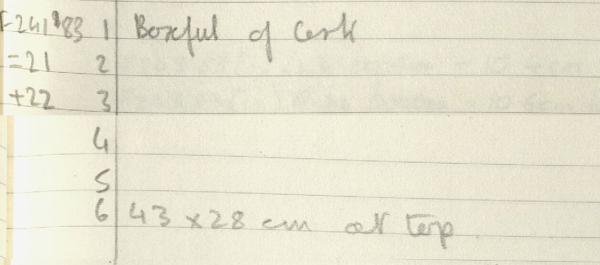 241'83 1 Boxful of Cork
=21 2
+22 3
4
5
6 43 x 28 cm at top